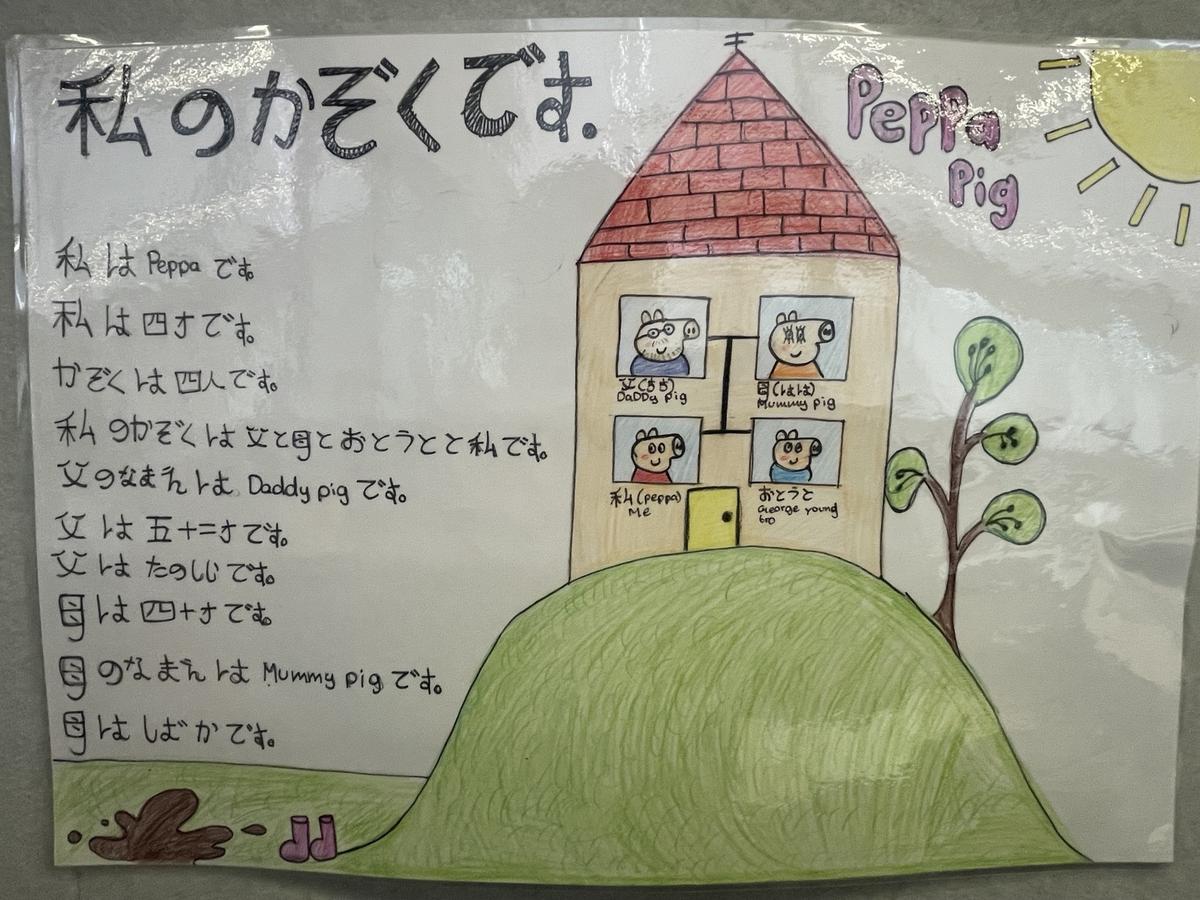 私のかぞくです.
Peppa
Pig
私は Peppa です。
私は四才です。
かぞくは四人です。
私のかぞくは父と母とおとうとと私です。
父のなまえは Daddy pig です。
父は五十二才です。
父はたのしじです。
母は四十才です。
母のなまえは Mummy pig です。
母はしばかです。
父(ちち)
DaDDy pig
母(はは)
Mummy pig
私(peppa)
Me
おとうと
George young
bro